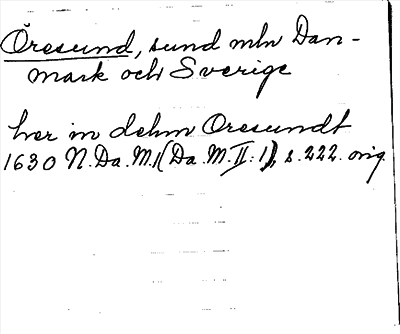 Öresund, sund mln Dan-
mark och Sverige
her in dehm Oresundt
1630 N. Da. M. (Da. M. II: 1), s. 222. orig.